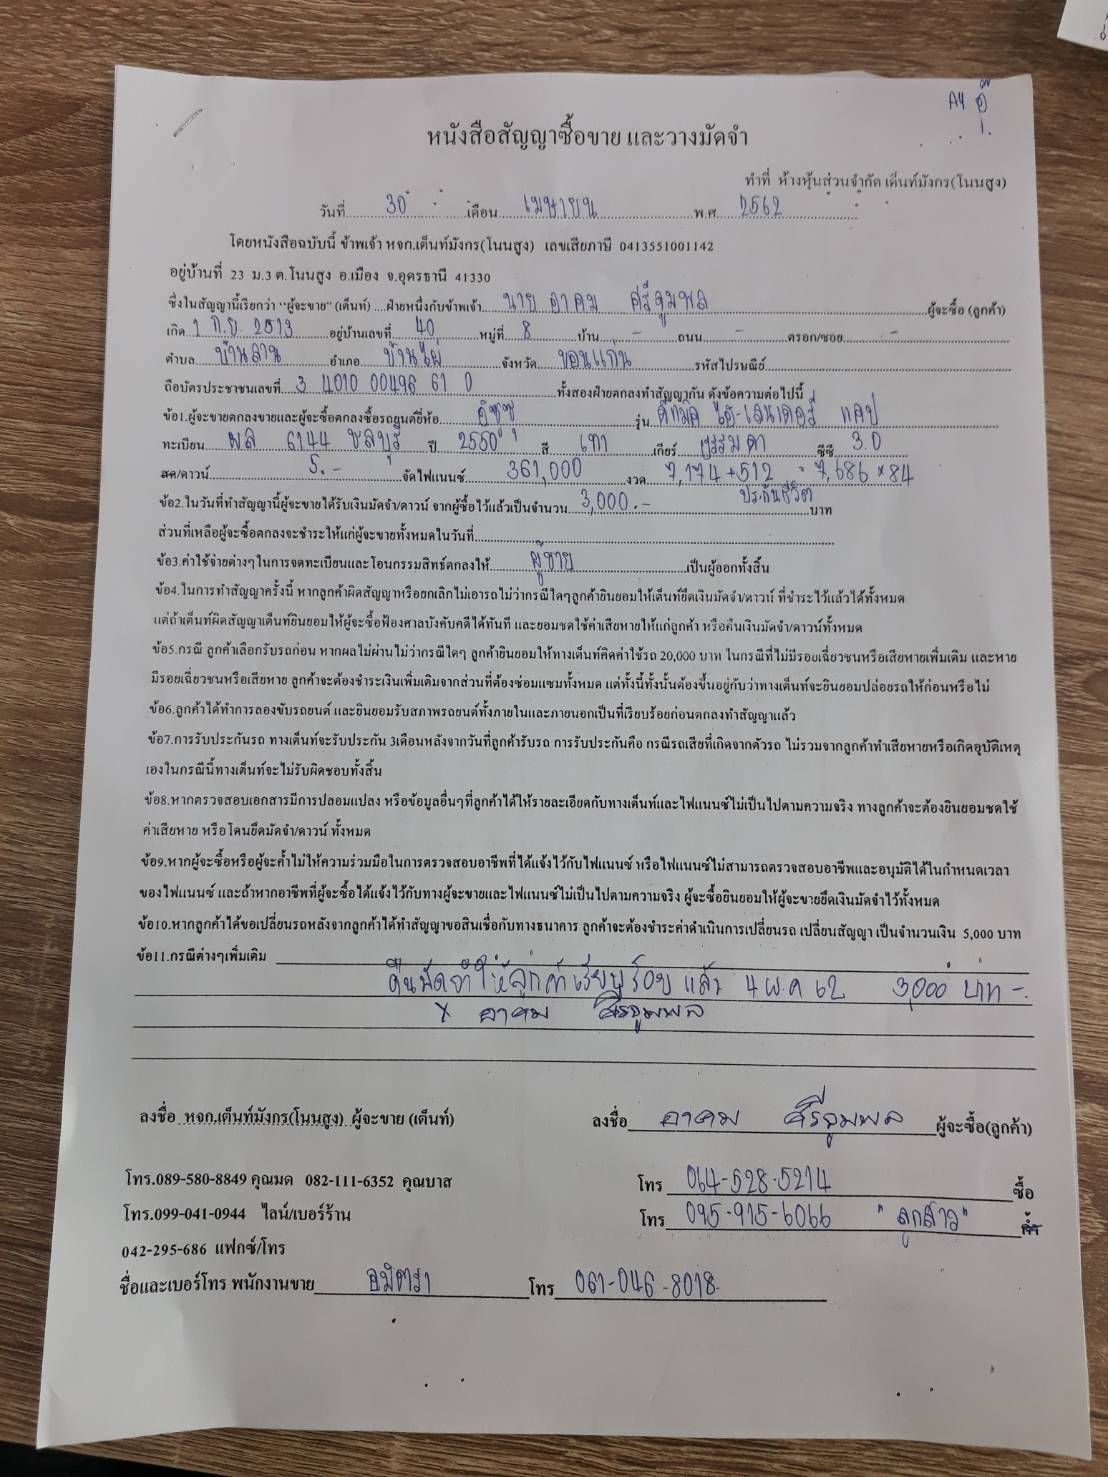 A4 อุ๊
หนังสือสัญญาซื้อขาย และวางมัดจำ
ทำที่ ห้างหุ้นส่วนจำกัด เต็นท์มังกร(โนนสูง)
วันที่ 30 เดือน เมษายน พ.ศ. 2562
โดยหนังสือฉบับนี้ ข้าพเจ้า หจก.เต็นท์มังกร(โนนสูง) เลขเสียภาษี 0413551001142
อยู่บ้านที่ 23 ม.3 ต.โนนสูง อ.เมือง จ.อุดรธานี 41330
ซึ่งในสัญญานี้เรียกว่า "ผู้จะขาย" (เต็นท์) ....ฝ่ายหนึ่งกับข้าพเจ้า นาย อาคม ศรีจูมพล ผู้จะซื้อ (ลูกค้า)
เกิด 1 ก.ย. 2513 อยู่บ้านเลขที่ 40 หมู่ที่ 8 บ้าน - ถนน - ตรอก/ซอย -
ตำบล บ้านลาน อำเภอ บ้านไผ่ จังหวัด ขอนแก่น รหัสไปรษณีย์
ถือบัตรประชาชนเลขที่ 3 4010 00496 61 0 ทั้งสองฝ่ายตกลงทำสัญญากัน ดังข้อความต่อไปนี้
ข้อ1.ผู้จะขายตกลงขายและผู้จะซื้อตกลงซื้อรถยนต์ยี่ห้อ อีซูซุ รุ่น ดีแม็ค ไฮ-แลนเดอร์ แคป
ทะเบียน ผล 6144 ชลบุรี ปี 2550 สี เทา เกียร์ ธรรมดา ซีซี 3.0
สด/ดาวน์ 5.- จัดไฟแนนซ์ 361,000 งวด 7,174+512 = 7,686 × 84
ประกันชีวิต
ข้อ2.ในวันที่ทำสัญญานี้ผู้จะขายได้รับเงินมัดจำ/ดาวน์ จากผู้ซื้อไว้แล้วเป็นจำนวน 3,000.- บาท
ส่วนที่เหลือผู้จะซื้อตกลงจะชำระให้แก่ผู้จะขายทั้งหมดในวันที่
ข้อ3.ค่าใช้จ่ายต่างๆในการจดทะเบียนและโอนกรรมสิทธ์ตกลงให้ ผู้ขาย เป็นผู้ออกทั้งสิ้น
ข้อ4.ในการทำสัญญาครั้งนี้ หากลูกค้าผิดสัญญาหรือยกเลิกไม่เอารถไม่ว่ากรณีใดๆลูกค้ายินยอมให้เต็นท์ยึดเงินมัดจำ/ดาวน์ ที่ชำระไว้แล้วได้ทั้งหมด
แต่ถ้าเต็นท์ผิดสัญญาเต็นท์ยินยอมให้ผู้จะซื้อฟ้องศาลบังคับคดีได้ทันที และยอมชดใช้ค่าเสียหายให้แก่ลูกค้า หรือคืนเงินมัดจำ/ดาวน์ทั้งหมด
ข้อ5.กรณี ลูกค้าเลือกรับรถก่อน หากผลไม่ผ่านไม่ว่ากรณีใดๆ ลูกค้ายินยอมให้ทางเต็นท์คิดค่าใช้รถ 20,000 บาท ในกรณีที่ไม่มีรอยเฉี่ยวชนหรือเสียหายเพิ่มเติม และหาย
มีรอยเฉี่ยวชนหรือเสียหาย ลูกค้าจะต้องชำระเงินเพิ่มเติมจากส่วนที่ต้องซ่อมแซมทั้งหมด แต่ทั้งนี้ทั้งนั้นต้องขึ้นอยู่กับว่าทางเต็นท์จะยินยอมปล่อยรถให้ก่อนหรือไม่
ข้อ6.ลูกค้าได้ทำการลองขับรถยนต์ และยินยอมรับสภาพรถยนต์ทั้งภายในและภายนอกเป็นที่เรียบร้อยก่อนตกลงทำสัญญาแล้ว
ข้อ7.การรับประกันรถ ทางเต็นท์จะรับประกัน 3เดือนหลังจากวันที่ลูกค้ารับรถ การรับประกันคือ กรณีรถเสียที่เกิดจากตัวรถ ไม่รวมจากลูกค้าทำเสียหายหรือเกิดอุบัติเหตุ
เองในกรณีนี้ทางเต็นท์จะไม่รับผิดชอบทั้งสิ้น
ข้อ8.หากตรวจสอบเอกสารมีการปลอมแปลง หรือข้อมูลอื่นๆที่ลูกค้าได้ให้รายละเอียดกับทางเต็นท์และไฟแนนซ์ไม่เป็นไปตามความจริง ทางลูกค้าจะต้องยินยอมชดใช้
ค่าเสียหาย หรือโดนยึดมัดจำ/ดาวน์ ทั้งหมด
ข้อ9.หากผู้จะซื้อหรือผู้จะค้ำไม่ให้ความร่วมมือในการตรวจสอบอาชีพที่ได้แจ้งไว้กับไฟแนนซ์ หรือไฟแนนซ์ไม่สามารถตรวจสอบอาชีพและอนุมัติได้ในกำหนดเวลา
ของไฟแนนซ์ และถ้าหากอาชีพที่ผู้จะซื้อได้แจ้งไว้กับทางผู้จะขายและไฟแนนซ์ไม่เป็นไปตามความจริง ผู้จะซื้อยินยอมให้ผู้จะขายยึดเงินมัดจำไว้ทั้งหมด
ข้อ10.หากลูกค้าได้ขอเปลี่ยนรถหลังจากลูกค้าได้ทำสัญญาขอสินเชื่อกับทางธนาคาร ลูกค้าจะต้องชำระค่าดำเนินการเปลี่ยนรถ เปลี่ยนสัญญา เป็นจำนวนเงิน 5,000 บาท
ข้อ11.กรณีต่างๆเพิ่มเติม
คืนมัดจำให้ลูกค้าเรียบร้อย แล้ว 4 พ.ค 62 3,000 บาท -.
x อาคม ศรีจูมพล
ลงชื่อ หจก.เต็นท์มังกร(โนนสูง) ผู้จะขาย (เต็นท์) ลงชื่อ อาคม ศรีจูมพล ผู้จะซื้อ(ลูกค้า)
โทร.089-580-8849 คุณมด 082-111-6352 คุณบาส โทร 064-528-5214 ซื้อ
โทร.099-041-0944 ไลน์/เบอร์ร้าน โทร 095-915-6066 "ลูกสาว" ค้ำ
042-295-686 แฟกซ์/โทร
ชื่อและเบอร์โทร พนักงานขาย อมิตรา โทร 061-046-8018